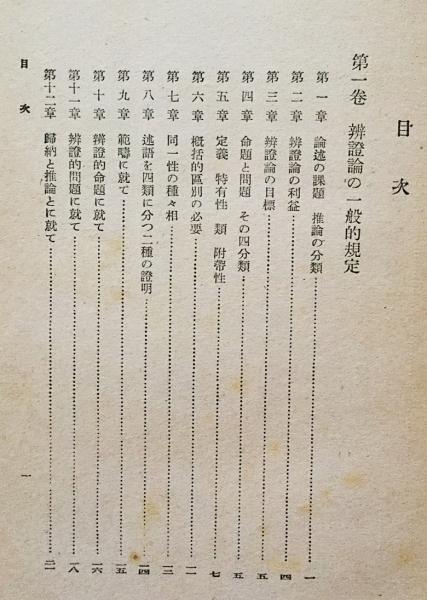 目次
第一卷 辨證論の一般的規定
第一章 論述の課題 推論の分類……一
第二章 辨證論の利益……四
第三章 辨證論の目標……五
第四章 命題と問題 その四分類……五
第五章 定義 特有性 類 附帶性……七
第六章 槪括的區別の必要……一一
第七章 同一性の種々相……一三
第八章 述語を四類に分つ二種の證明……一四
第九章 範疇に就て……一五
第十章 辨證的命題に就て……一六
第十一章 辨證的問題に就て……一八
第十二章 歸納と推論とに就て……二一
目次
一